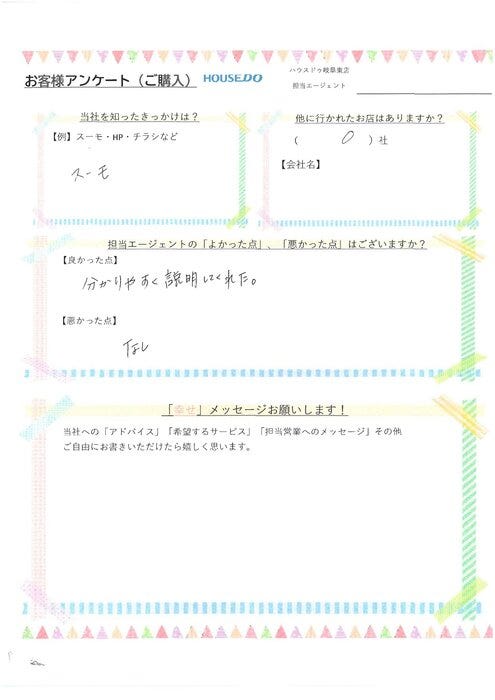 お客様アンケート（ご購入） HOUSEDO
ハウスドゥ岐阜東店
担当エージェント
当社を知ったきっかけは？
【例】スーモ・HP・チラシなど
スーモ
他に行かれたお店はありますか？
（ 0 ）社
【会社名】
担当エージェントの「よかった点」、「悪かった点」はございますか？
【良かった点】
分かりやすく説明してくれた。
【悪かった点】
なし
「幸せ」メッセージお願いします！
当社への「アドバイス」「希望するサービス」「担当営業へのメッセージ」その他
ご自由にお書きいただけたら嬉しく思います。